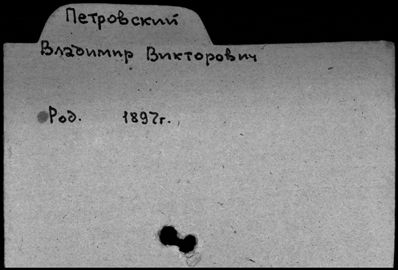 Петровский
Владимир Викторович
Род. 1897г.